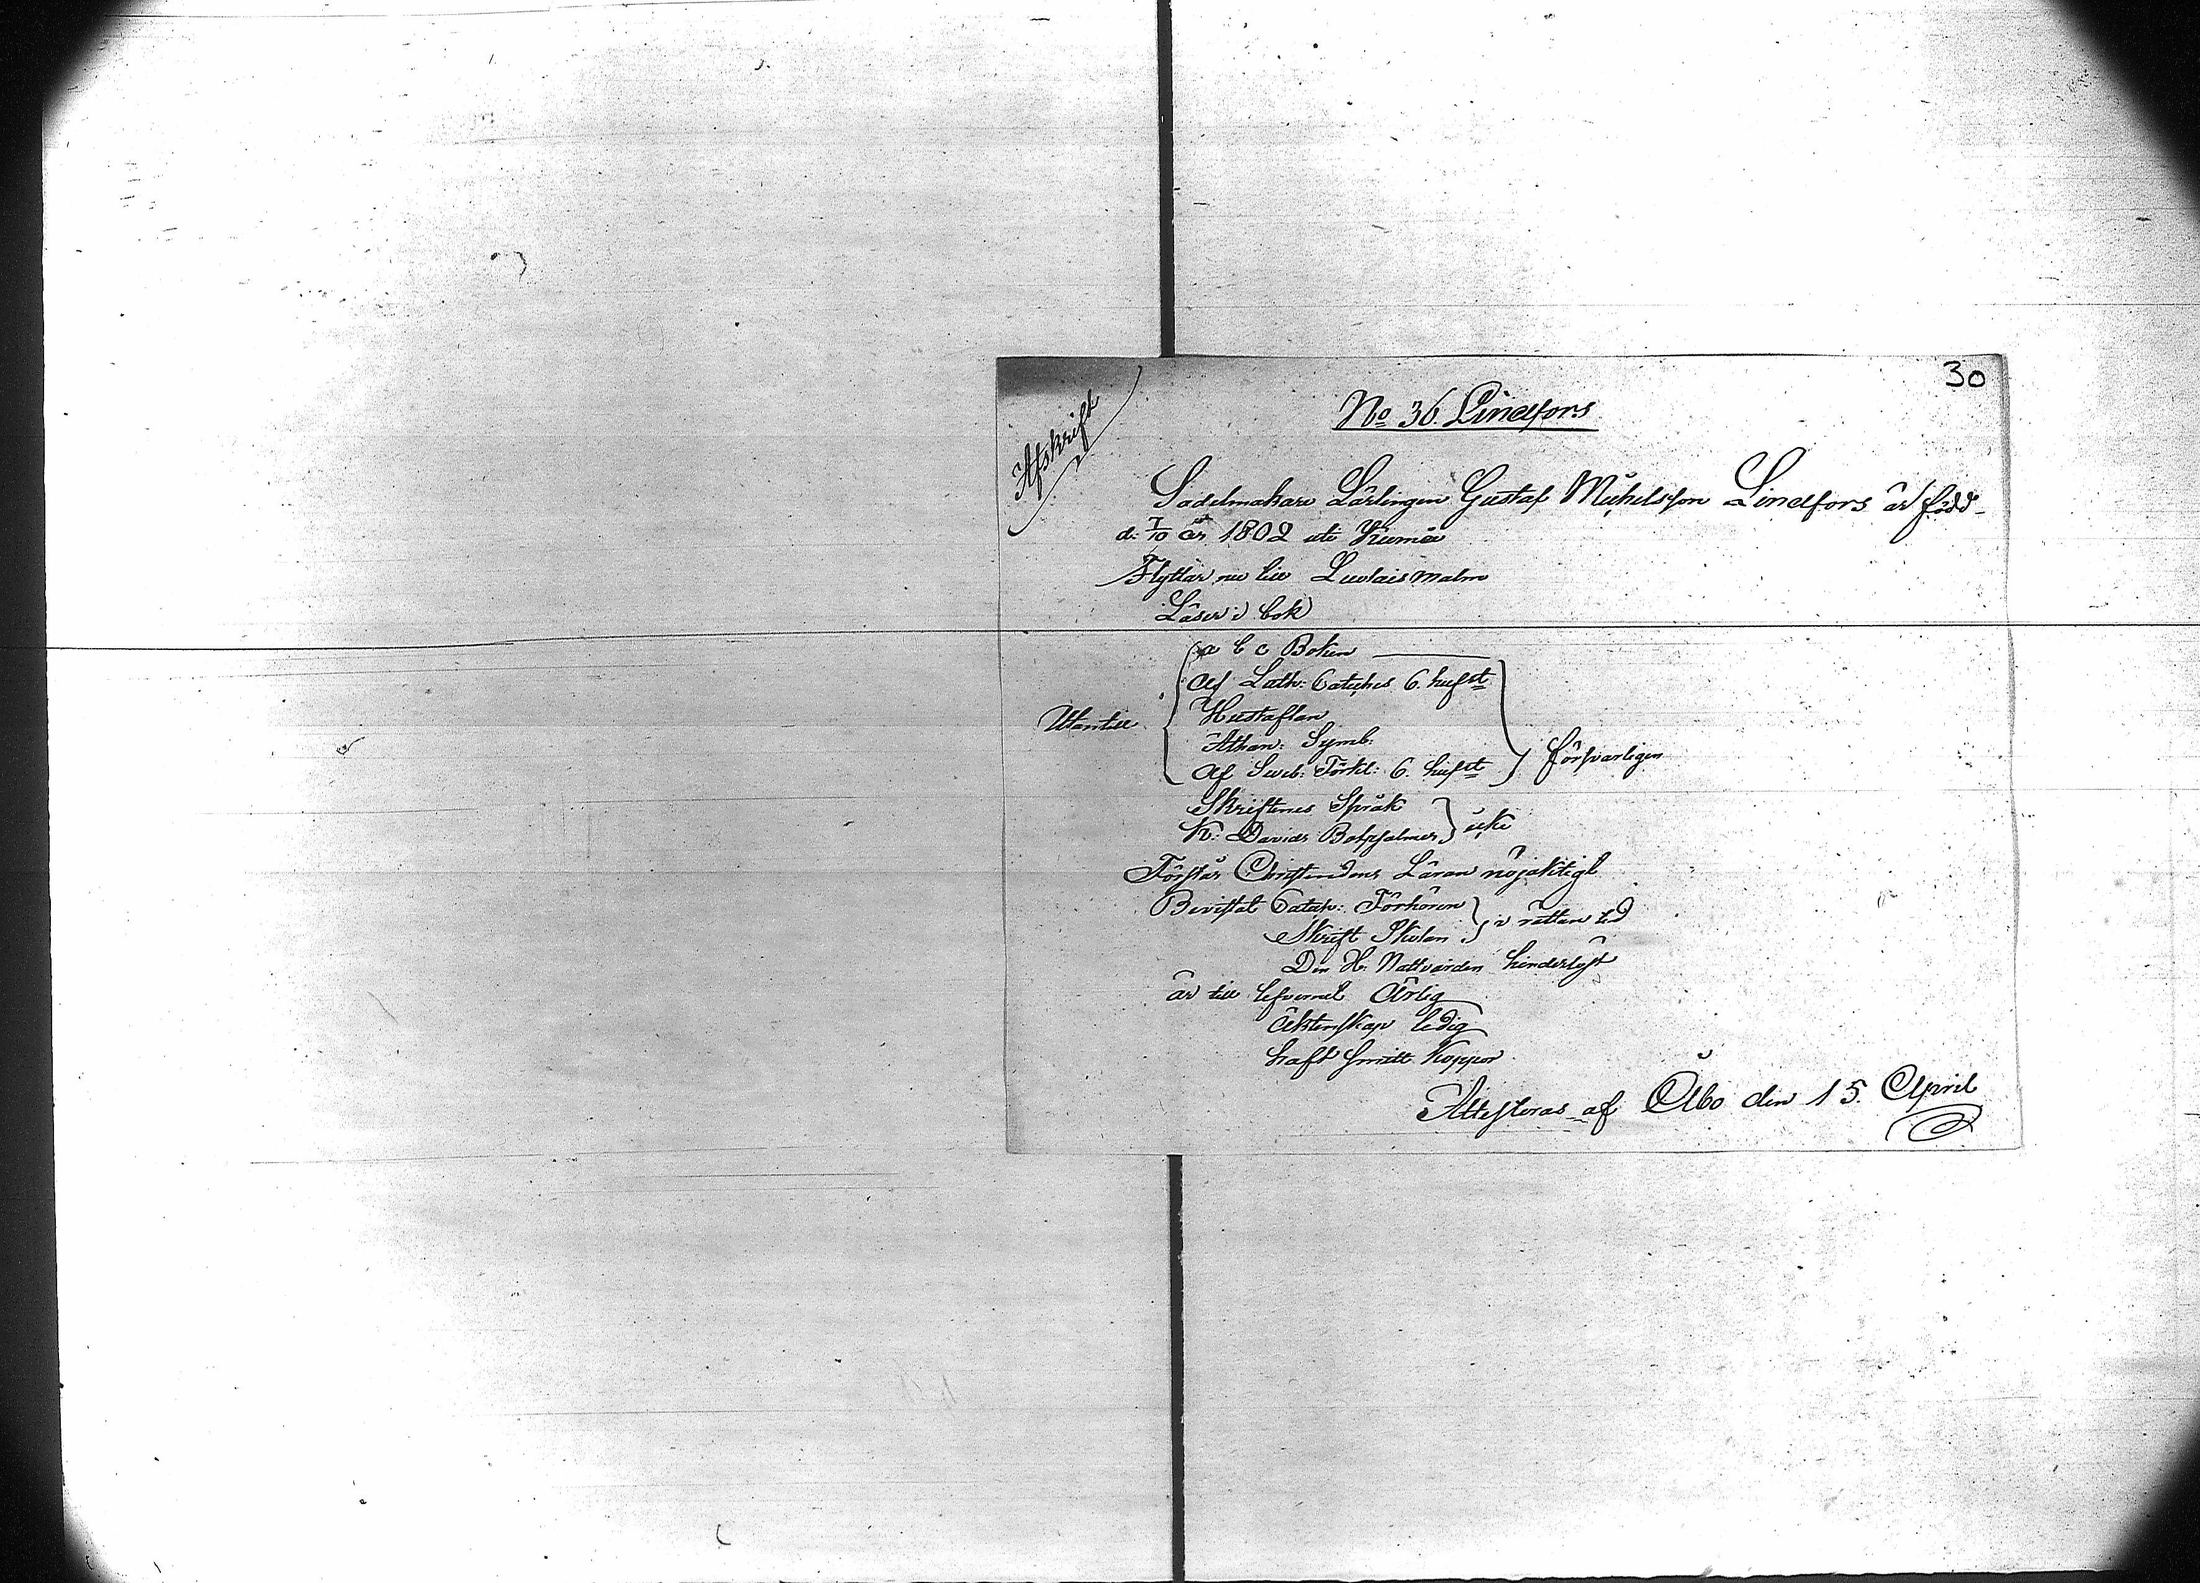 30
Afskrift
No 36. Lindfors
Sadelmakare Lärlingen Gustaf Michelsson Lindfors är född
d: 7/10 år 1802 uti Kumå
Flyttar nu till Luvlais malm
Läser i bok
a b c Boken
Af Luth: Catches 6. hufst
Hustaflan
Utantill
Athan: Symb:
Af Sveb: Förkl: 6. hufst försvarligen
Skriftenes Språk
K: Davids Botpsalmer icke
Förstår Christendoms Läran nöjaktigt
Bevistat Catech: Förhören
Skrift Skolan i rättan tid
Den H. Nattvarden hinderlöst
är till lefvernet Ärlig
Äktenskap ledig
haft smitt Koppor
Attesteras af Åbo den 15. April